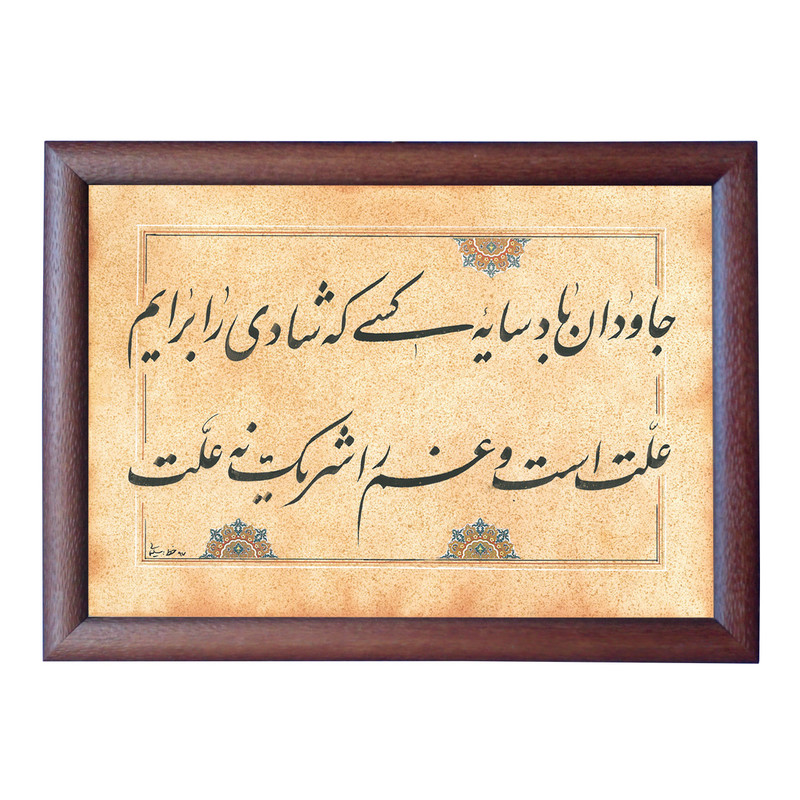 جاودان باد سایهٔ کسی که شادی را برایم
علّت است و غم را شریک نه علّت